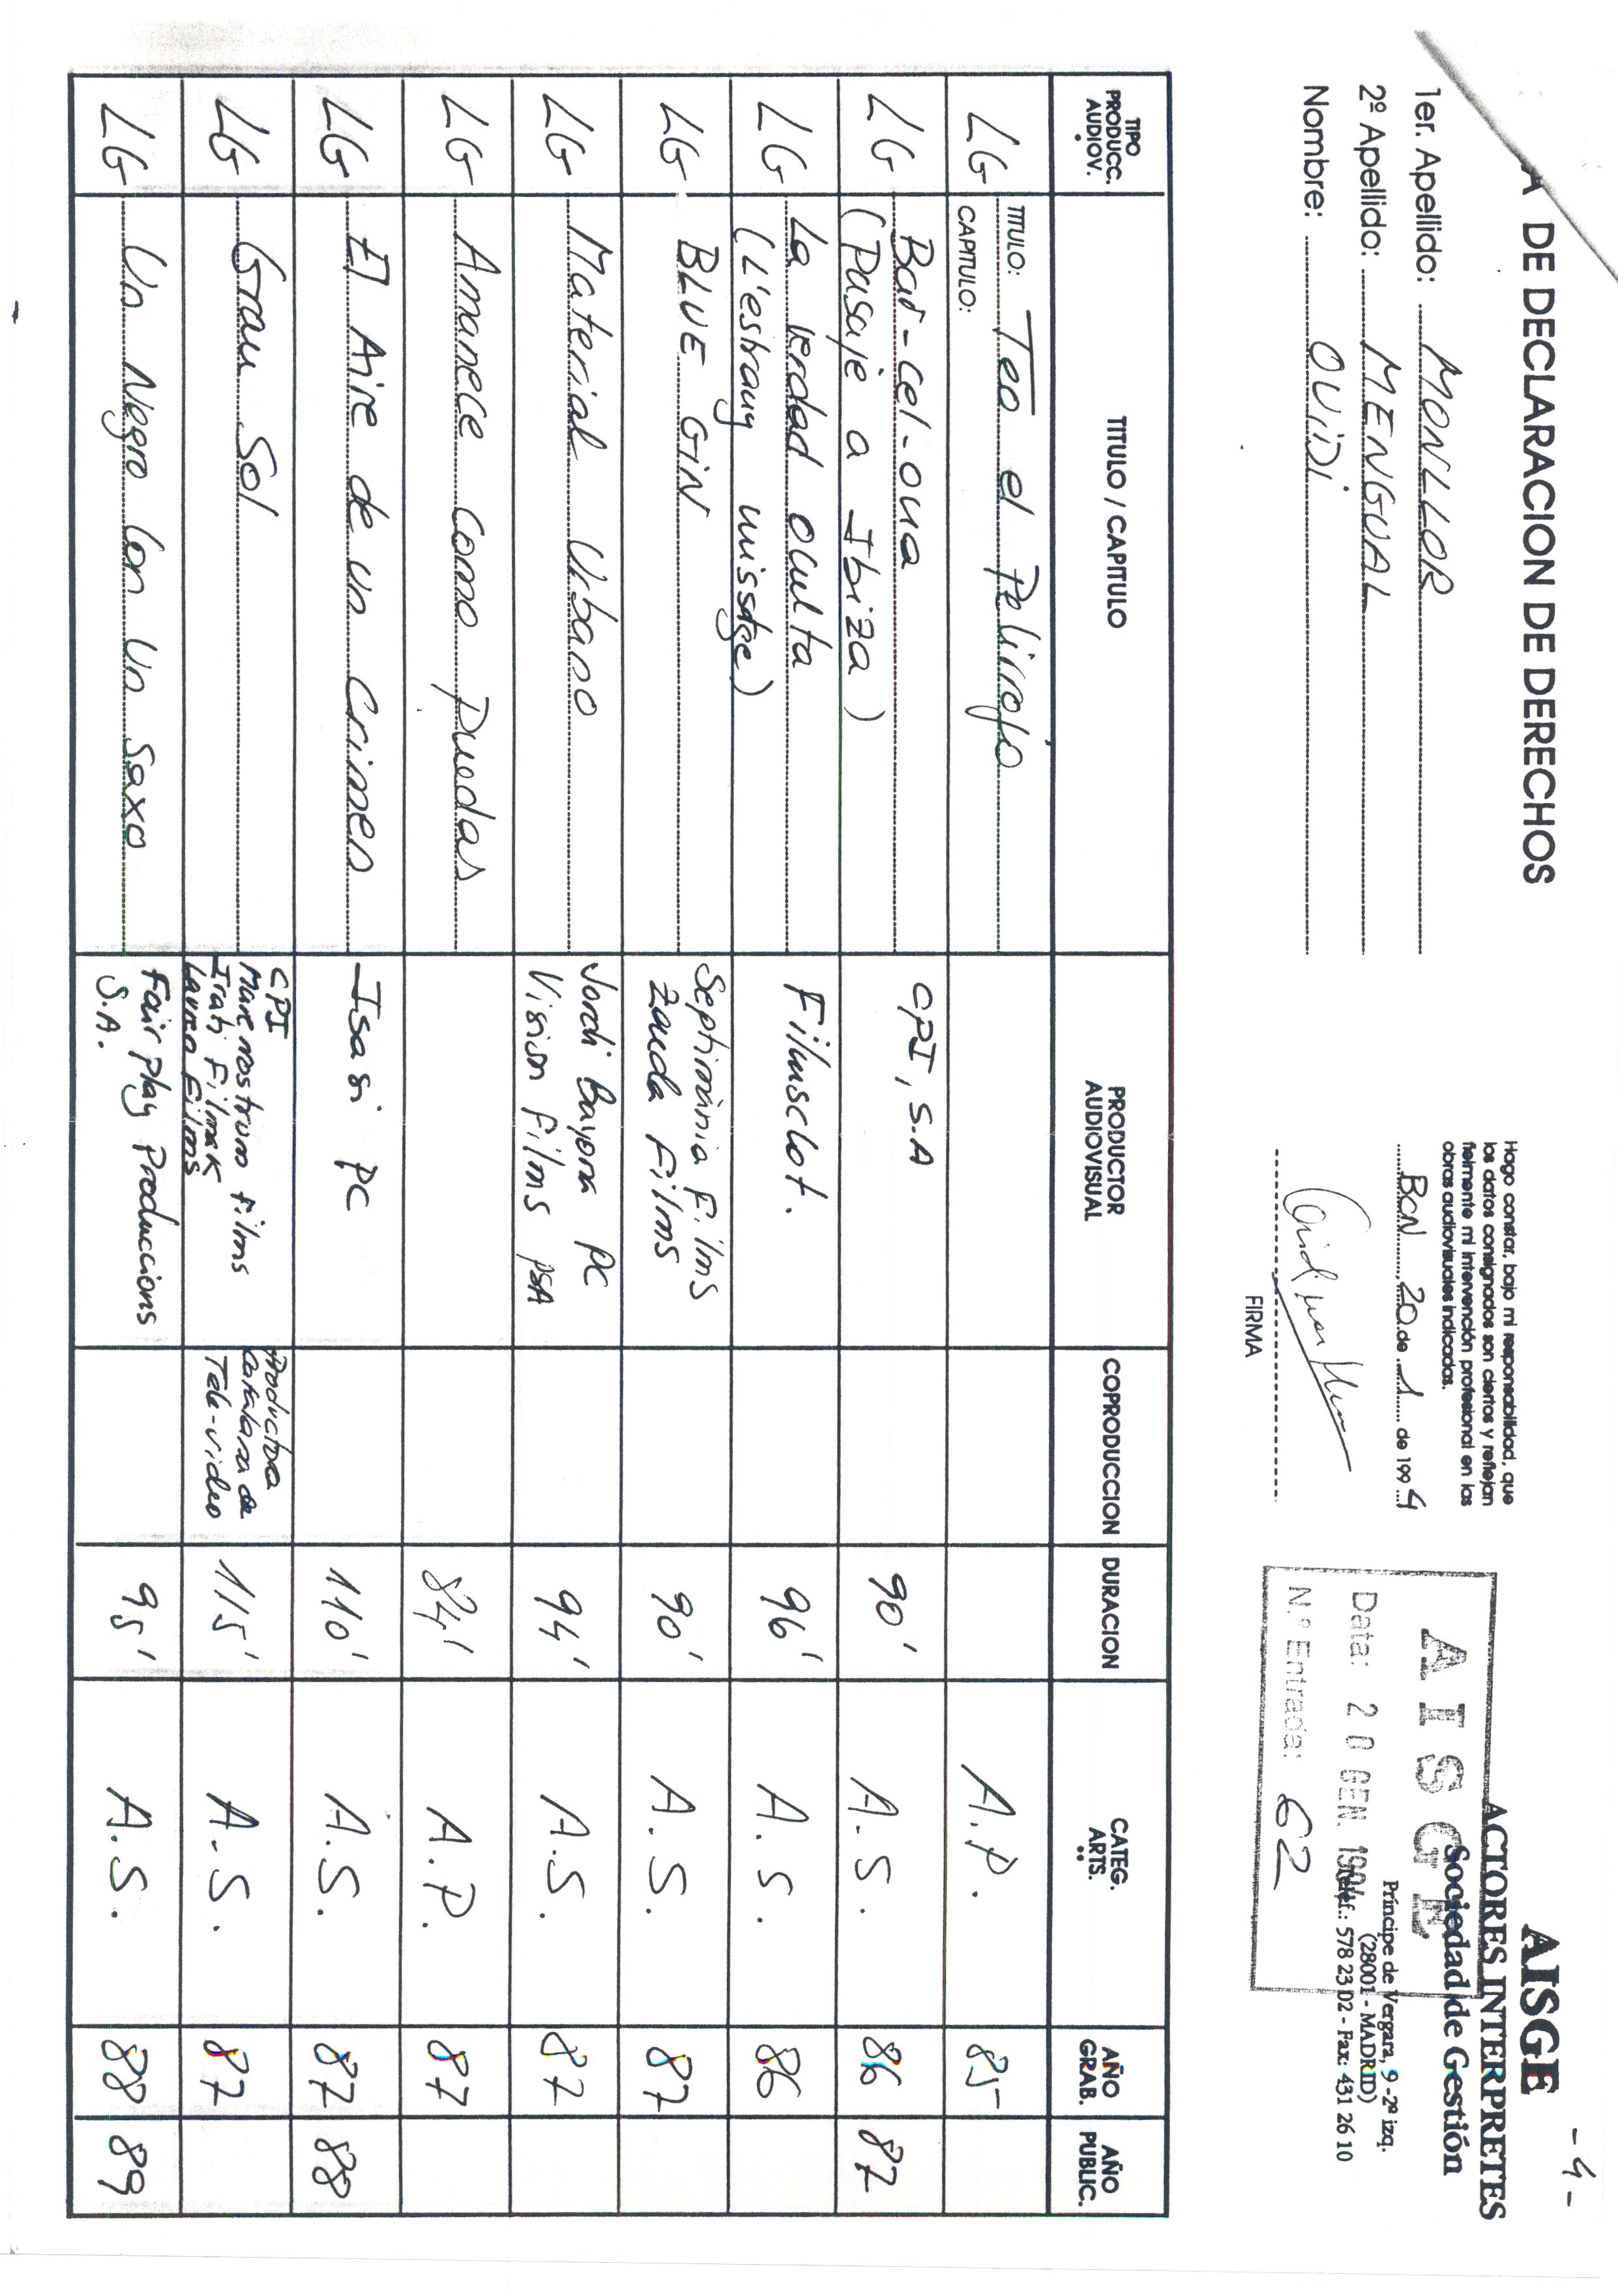 -4-
A DE DECLARACION DE DERECHOS
1er. Apellido: MONLLOR
2º Apellido: MENGUAL
Nombre: OVIDI
Hago constar, bajo mi responsabilidad, que
los datos consignados son ciertos y reflejan
fielmente mi intervención profesional en las
obras audiovisuales indicadas.
BCN, 20 de 1 de 1994
FIRMA
AISGE
ACTORES INTERPRETES
Sociedad de Gestión
Príncipe de Vergara, 9 -2º izq.
(28001 - MADRID)
Telef.: 578 23 02 - Fax: 431 26 10
AISGE
Data: 20 GEN. 1994
N.º Entrada: 62
TIPO PRODUCC. AUDIOV. TITULO / CAPITULO PRODUCTOR AUDIOVISUAL COPRODUCCION DURACION CATEG. ARTS. AÑO GRAB. AÑO PUBLIC.
LG TITULO: Teo el Pelirojo A.P. 85
CAPITULO:
LG Bar-cel-ona CPI, S.A 90' A.S. 86 87
(Pasaje a Ibiza)
LG La verdad oculta Filmsclot. 96' A.S. 86
(L'estrany missatge)
LG BLUE GIN Septimània Films 90' A.S. 87
Zauda Films
LG Material Urbano Jordi Bayona PC 94' A.S. 87
Vision Films PSA
LG Amanece como puedas 84' A.P. 87
LG El Aire de un Crimen Isasi PC 110' A.S. 87 88
LG Grau Sol CPI Productora 115' A.S. 87
Mare nostrum Films catalana de
Irati Filmak Tele-video
Lauro Films
LG Un Negro Con Un Saxo Fair Play Produccions 95' A.S. 88 89
S.A.